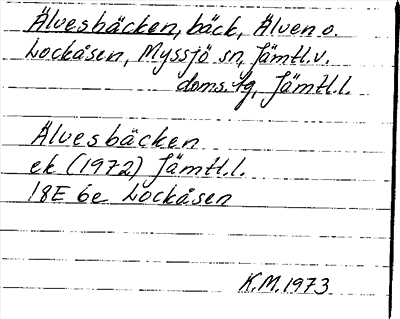 Älvesbäcken, bäck, Älven o.
Lockåsen, Myssjö sn, Jämtl.v.
doms.tg, Jämtl.l.
Älvesbäcken
ek (1972) Jämtl.l.
18E 6e Lockåsen
K.M. 1973